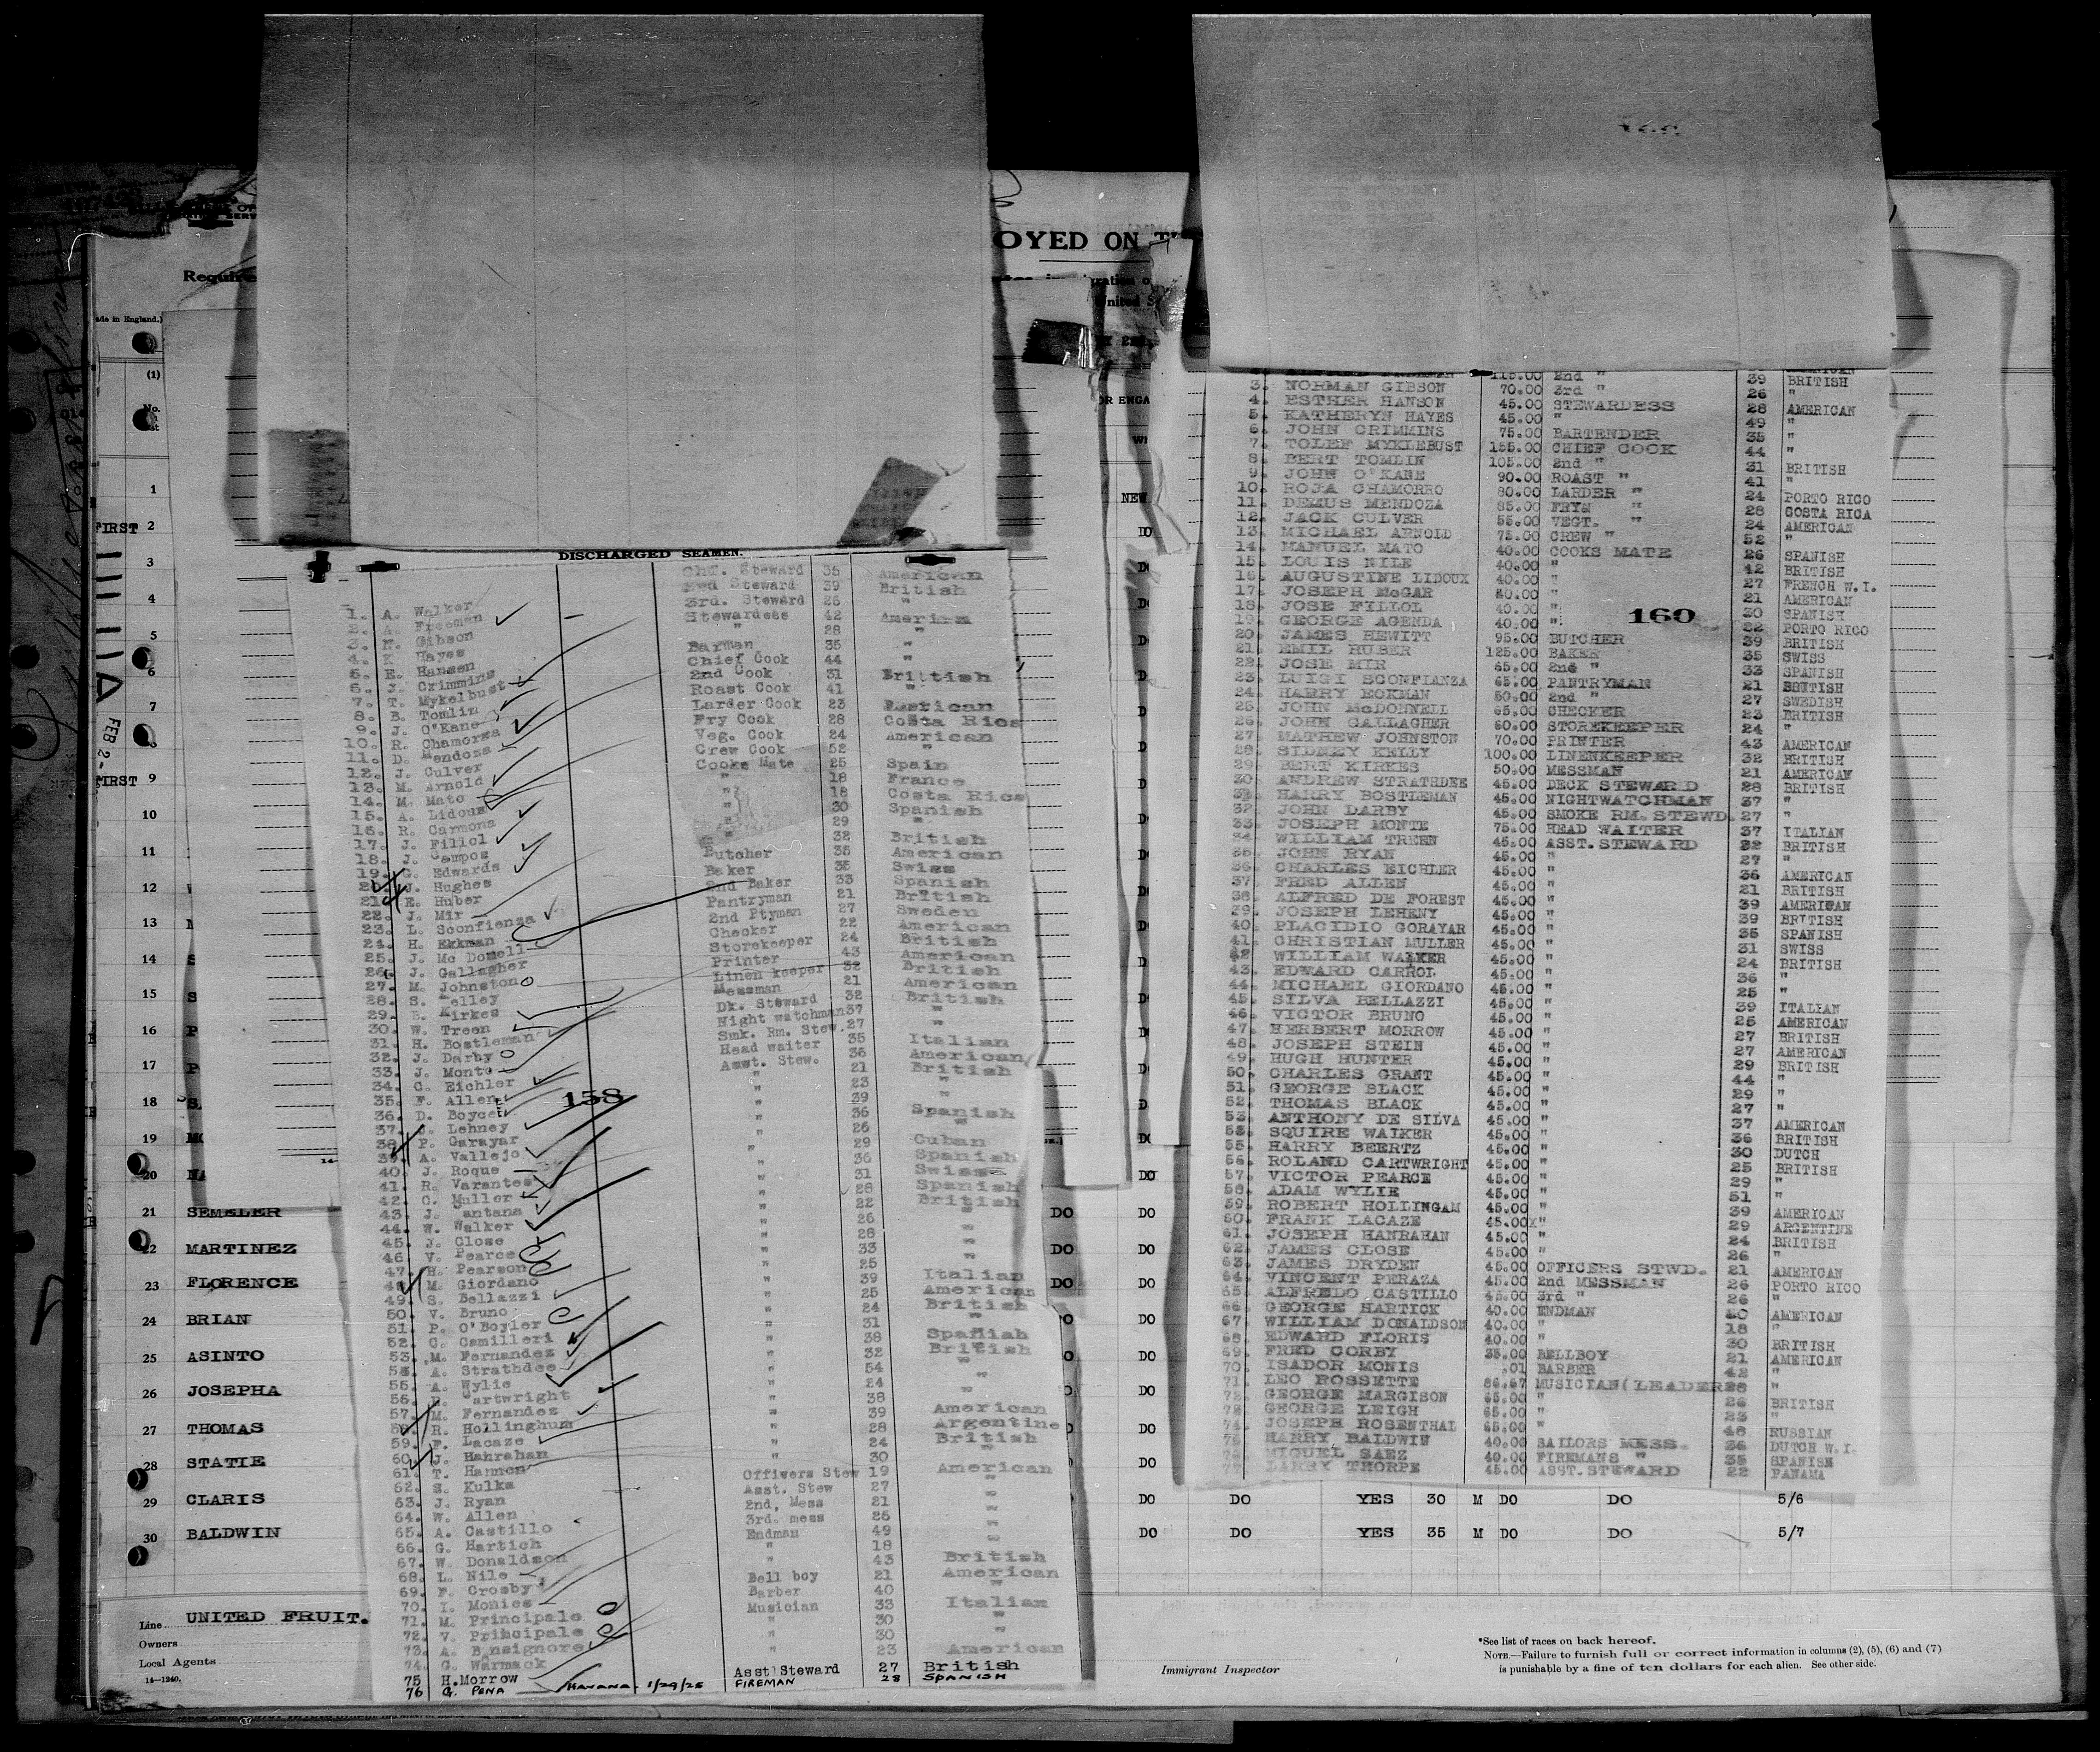 OYED ON T
Require
ade in England.)
(1)
No.
1
FIRST 2
3
4
5
6
7
FEB 2
FIRST 9
10
11
12
13
14
15
16
17
18
19
20
21 SEMELER DO DO
22 MARTINEZ DO DO
23 FLORENCE DO DO
24 BRIAN DO
25 ASINTO DO
26 JOSEPHA DO
27 THOMAS DO
28 STATIE DO
29 CLARIS DO DO YES 30 M DO DO 5/6
30 BALDWIN DO DO YES 35 M DO DO 5/7
Line UNITED FRUIT.
Owners
Local Agents
14—1240.
Immigrant Inspector
*See list of races on back hereof.
NOTE.—Failure to furnish full or correct information in columns (2), (5), (6) and (7)
is punishable by a fine of ten dollars for each alien. See other side.
DISCHARGED SEAMEN.
1. A. Walker Chf. Steward 35 American
2. A. Freeman 2nd Steward 39 British
3. N. Gibson 3rd. Steward 26 "
4. K Hayes Stewardess 42 American
5. E. Hansen " 28 "
6. J. Crimmins Barman 35 "
7. T. Mykelbust Chief Cook 44 "
8. B. Tomlin 2nd Cook 31 British
9. J. O'Kane Roast Cook 41 "
10. R. Chamorga Larder Cook 23 American
11. D. Mendoza Fry Cook 28 Costa Rica
12. J. Culver Veg. Cook 24 American
13. M. Arnold Crew Cook 52 "
14. M. Mato Cooks Mate 25 Spain
15. A. Lidoux " 18 France
16. R. Carmona " 18 Costa Rica
17. J. Filicl " 30 Spanish
18. J. Campos " 29 "
19. G. Edwards " 32 British
20. J. Hughes Butcher 35 American
21. E. Huber Baker 35 Swiss
22. J. Mir 2nd Baker 33 Spanish
23. L. Sconfienza Pantryman 21 British
24. H. Ekkman 2nd Ptyman 27 Sweden
25. J. Mc Donell Checker 22 American
26. J. Gallagher Storekeeper 24 British
27. M. Johnston Printer 43 American
28. S. Kelley Linen keeper 32 British
29. B. Kirkes Messman 21 American
30. W. Treen Dk. Steward 32 British
31. H. Bostleman Night watchman 37 "
32. J. Darby Smk. Rm. Stew. 27 "
33. J. Monte Head waiter 35 Italian
34. C. Eichler Asst. Stew. 36 American
35. F. Allen " 21 British
36. D. Boyce " 23 "
158
37. J. Lehney " 39 "
38. P. Garayar " 36 Spanish
39. A. Vallejo " 26 "
40. J. Roque " 29 Cuban
41. R. Varantes " 36 Spanish
42. C. Muller " 31 Swiss
43. J. antana " 28 Spanish
44. W. Walker " 22 British
45. J. Close " 26 "
46 V. Pearce " 28 "
47. H. Pearson " 33 "
48. M. Giordano " 25 "
49. S. Bellazzi " 39 Italian
50. V. Bruno " 25 American
51. P. O'Boyler " 24 British
52. C. Camilleri " 31 "
53. M. Fernandez " 38 Spanish
54. A. Strathdee " 32 British
55. A. Wylie " 54 "
56. R. Cartwright " 24 "
57. M. Fernandez " 38 "
58. R. Hollinghum " 39 American
59. F. Lacaze " 28 Argentine
60. J. Hanrahan " 24 British
61. T. Hannon " 30 "
62. S. Kulka Officers Stew 19 American
63. J. Ryan Asst. Stew 27 "
64. W. Allen 2nd, Mess 21 "
65. A. Castillo 3rd. mess 25 "
66. G. Hartich Endman 49 "
67. W. Donaldson " 18 "
68. L. Nile " 43 British
69. F. Crosby Bell boy 21 American
70. I. Monies Barber 40 "
71. M. Principale Musician 33 Italian
72. V. Principale " 30 "
73. A. Bnsignore " 30 "
74. G. Warmack " 23 American
75 H. Morrow Asst Steward 27 British
76 G. PENA HAVANA. 1/29/25 FIREMAN 28 SPANISH
3. NORMAN GIBSON 70.00 3rd " 26 "
4. ESTHER HANSON 45.00 STEWARDESS 28 AMERICAN
5. KATHERYN HAYES 45.00 " 49 "
6. JOHN CRIMMINS 75.00 BARTENDER 35 "
7. TOLEF MYKLEBUST 155.00 CHIEF COOK 44 "
8. BERT TOMLIN 105.00 2nd " 31 BRITISH
9. JOHN O'KANE 90.00 ROAST " 41 "
10. ROJA CHAMORRO 80.00 LARDER " 24 PORTO RICO
11. DEMUS MENDOZA 85.00 FRYN " 28 COSTA RICA
12. JACK CULVER 55.00 VEGT. " 24 AMERICAN
13. MICHAEL ARNOLD 75.00 CREW " 52 "
14. MANUEL MATO 40.00 COOKS MATE 26 SPANISH
15. LOUIS NILE 40.00 " 42 BRITISH
16. AUGUSTINE LIDOUX 40.00 " 27 FRENCH W.I.
17. JOSEPH McGAR 80.00 " 21 AMERICAN
18. JOSE FILLOL 40.00 " 30 SPANISH
160
19. GEORGE AGENDA 40.00 " 32 PORTO RICO
20. JAMES HEWITT 95.00 BUTCHER 39 BRITISH
21. EMIL HUBER 125.00 BAKER 35 SWISS
22. JOSE MIR 65.00 2nd " 33 SPANISH
23. LUIGI SCONFIANZA 65.00 PANTRYMAN 21 BRITISH
24. HARRY ECKMAN 50.00 2nd " 27 SWEDISH
25. JOHN McDONNELL 65.00 CHECKER 23 BRITISH
26. JOHN GALLAGHER 60.00 STOREKEEPER 24 "
27. MATHEW JOHNSTON 70.00 PRINTER 43 AMERICAN
28. SIDNEY KELLY 100.00 LINENKEEPER 32 BRITISH
29. BERT KIRKES 50.00 MESSMAN 21 AMERICAN
30. ANDREW STRATHDEE 45.00 DECK STEWARD 28 BRITISH
31. HARRY BOSTLEMAN 45.00 NIGHTWATCHMAN 37 "
32. JOHN DARBY 45.00 SMOKE RM. STEWD. 27 "
33. JOSEPH MONTE 75.00 HEAD WAITER 37 ITALIAN
34. WILLIAM TREEN 45.00 ASST. STEWARD 32 BRITISH
35. JOHN RYAN 45.00 " 27 "
36. CHARLES EICHLER 45.00 " 36 AMERICAN
37. FRED ALLEN 45.00 " 21 BRITISH
38. ALFRED DE FOREST 45.00 " 39 AMERICAN
39. JOSEPH LEHENY 45.00 " 39 BRITISH
40. PLACIDIO GORAYAR 45.00 " 35 SPANISH
41. CHRISTIAN MULLER 45.00 " 31 SWISS
42. WILLIAM WALKER 45.00 " 24 BRITISH
43. EDWARD CARROL 45.00 " 36 "
44. MICHAEL GIORDANO 45.00 " 25 "
45. SILVA BELLAZZI 45.00 " 39 ITALIAN
46. VICTOR BRUNO 45.00 " 25 AMERICAN
47. HERBERT MORROW 45.00 " 27 BRITISH
48. JOSEPH STEIN 45.00 " 27 AMERICAN
49. HUGH HUNTER 45.00 " 29 BRITISH
50. CHARLES GRANT 45.00 " 44 "
51. GEORGE BLACK 45.00 " 29 "
52. THOMAS BLACK 45.00 " 27 "
53. ANTHONY DE SILVA 45.00 " 37 AMERICAN
53. SQUIRE WALKER 45.00 " 36 BRITISH
55. HARRY BEERTZ 45.00 " 30 DUTCH
56. ROLAND CARTWRIGHT 45.00 " 25 BRITISH
57. VICTOR PEARCE 45.00 " 29 "
58. ADAM WYLIE 45.00 " 51 "
59. ROBERT HOLLINGAM 45.00 " 39 AMERICAN
60. FRANK LACAZE 45.00 " 29 ARGENTINE
61. JOSEPH HANRAHAN 45.00 " 24 BRITISH
62. JAMES CLOSE 45.00 " 26 "
63. JAMES DRYDEN 45.00 OFFICERS STWD. 21 AMERICAN
64. VINCENT PERAZA 45.00 2nd MESSMAN 26 PORTO RICO
65. ALFREDO CASTILLO 45.00 3rd " 26 "
66. GEORGE HARTICK 40.00 ENDMAN 50 AMERICAN
67 WILLIAM DONALDSON 40.00 " 18 "
68. EDWARD FLORIS 40.00 " 30 BRITISH
69. FRED CORBY 35.00 BELLBOY 21 AMERICAN
70. ISADOR MONIS .01 BARBER 42 "
71. LEO ROSSETTE 86.67 MUSICIAN(LEADER 28 "
72. GEORGE MARGISON 65.00 " 26 BRITISH
73 GEORGE LEIGH 65.00 " 23 "
74. JOSEPH ROSENTHAL 65.00 " 48 RUSSIAN
HARRY BALDWIN 40.00 SAILORS MESS. 36 DUTCH W.I.
MIGUEL SAEZ 40.00 FIREMANS " 35 SPANISH
LARRY THORPE 45.00 ASST. STEWARD 22 PANAMA